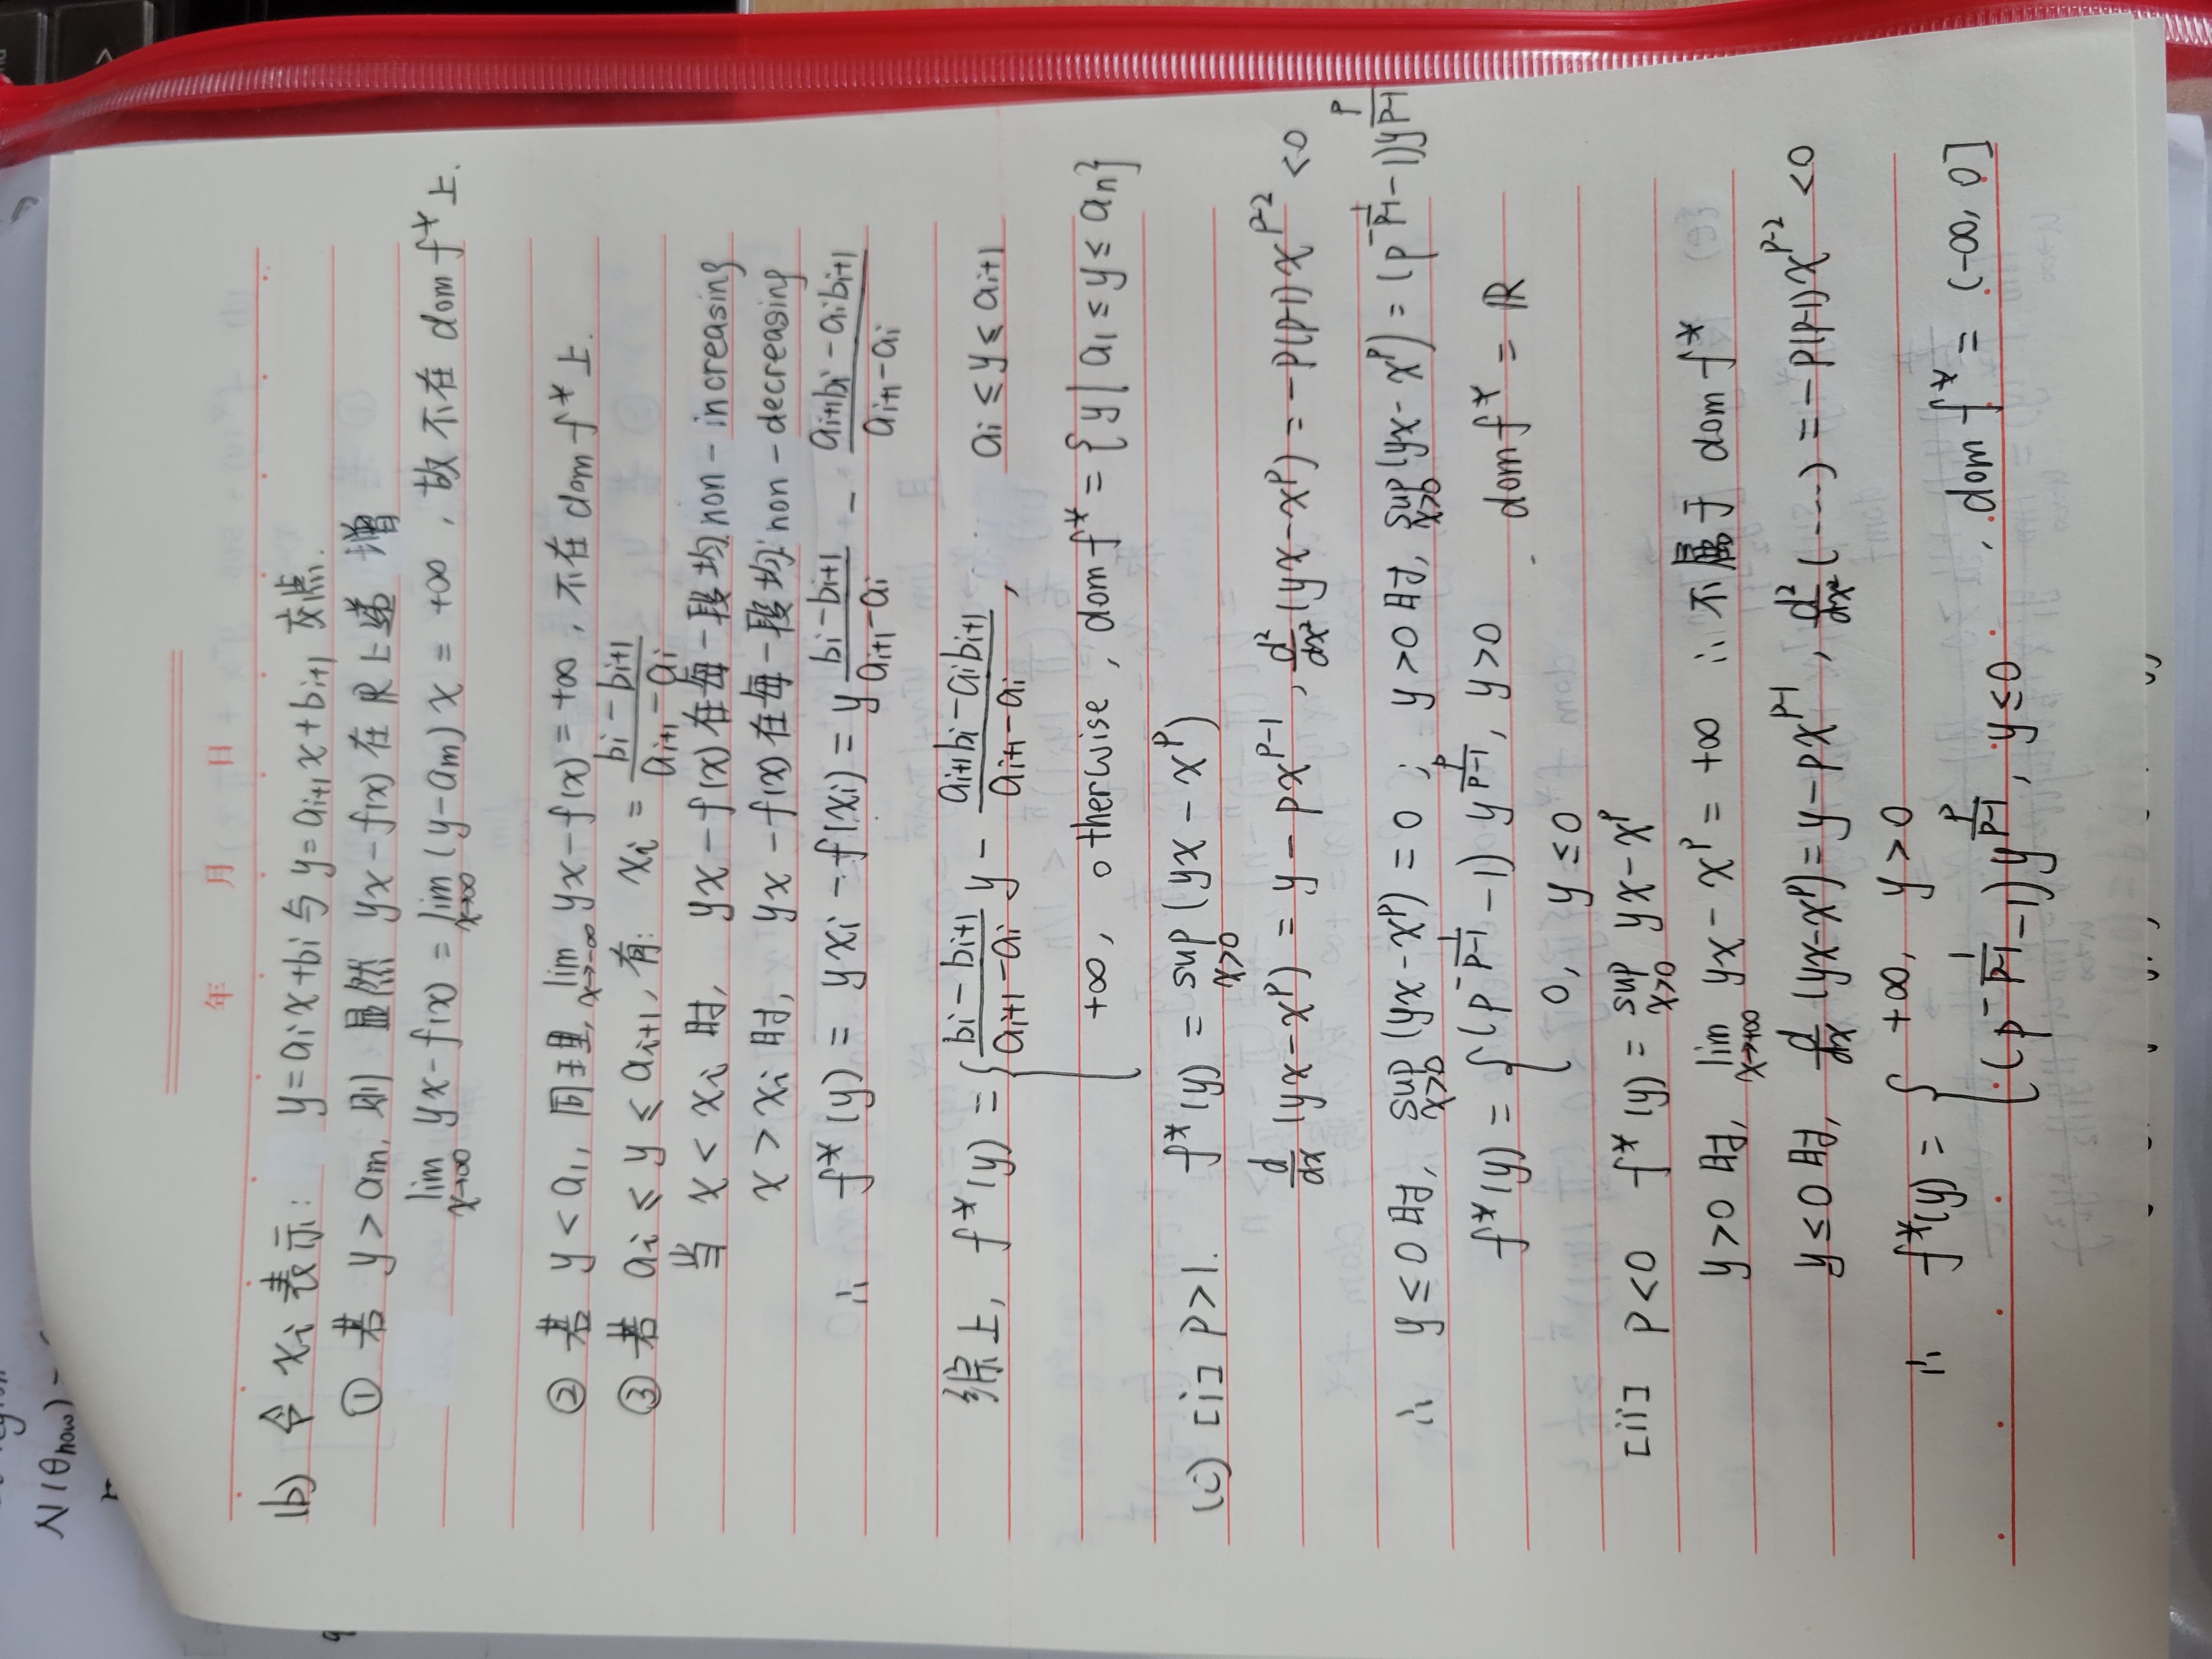 region
N(θnow) -
年 月 日
(b) 令 xi 表示: y=aix+bi 与 y=ai+1x+bi+1 交点.
① 若 y>am, 则 显然 yx-f(x) 在 R 上递增
lim x→∞ yx-f(x) = lim x→∞ (y-am)x = +∞, 故不在 dom f* 上.
② 若 y<a1, 同理, lim x→-∞ yx-f(x) = +∞, 不在 dom f* 上.
③ 若 ai ≤ y ≤ ai+1, 有: xi = (bi-bi+1)/(ai+1-ai)
当 x<xi 时, yx-f(x) 在每一段均 non-increasing
x>xi 时, yx-f(x) 在每一段均 non-decreasing
∴ f*(y) = yxi-f(xi) = y (bi-bi+1)/(ai+1-ai) - (ai+1bi-aibi+1)/(ai+1-ai)
综上, f*(y) = { (bi-bi+1)/(ai+1-ai) y - (ai+1bi-aibi+1)/(ai+1-ai), ai ≤ y ≤ ai+1
+∞, otherwise, dom f* = {y| a1 ≤ y ≤ an}
(c) [i] p>1. f*(y) = sup x>0 (yx-x^p)
d/dx (yx-x^p) = y-px^(p-1), d²/dx² (yx-x^p) = -p(p-1)x^(p-2) <0
∴ y≤0 时, sup x>0 (yx-x^p) = 0; y>0 时, sup x>0 (yx-x^p) = (p^(-1/(p-1))-1)y^(p/(p-1))
f*(y) = { (p^(-1/(p-1))-1) y^(p/(p-1)), y>0 dom f* = R
0, y≤0
[ii] p<0 f*(y) = sup x>0 yx-x^p
y>0 时, lim x→+∞ yx-x^p = +∞ ∴ 不属于 dom f*
y≤0 时, d/dx (yx-x^p) = y-px^(p-1), d²/dx² (····) = -p(p-1)x^(p-2) <0
∴ f*(y) = { +∞, y>0
(p^(-1/(p-1))-1)y^(p/(p-1)), y≤0, dom f* = (-∞, 0]